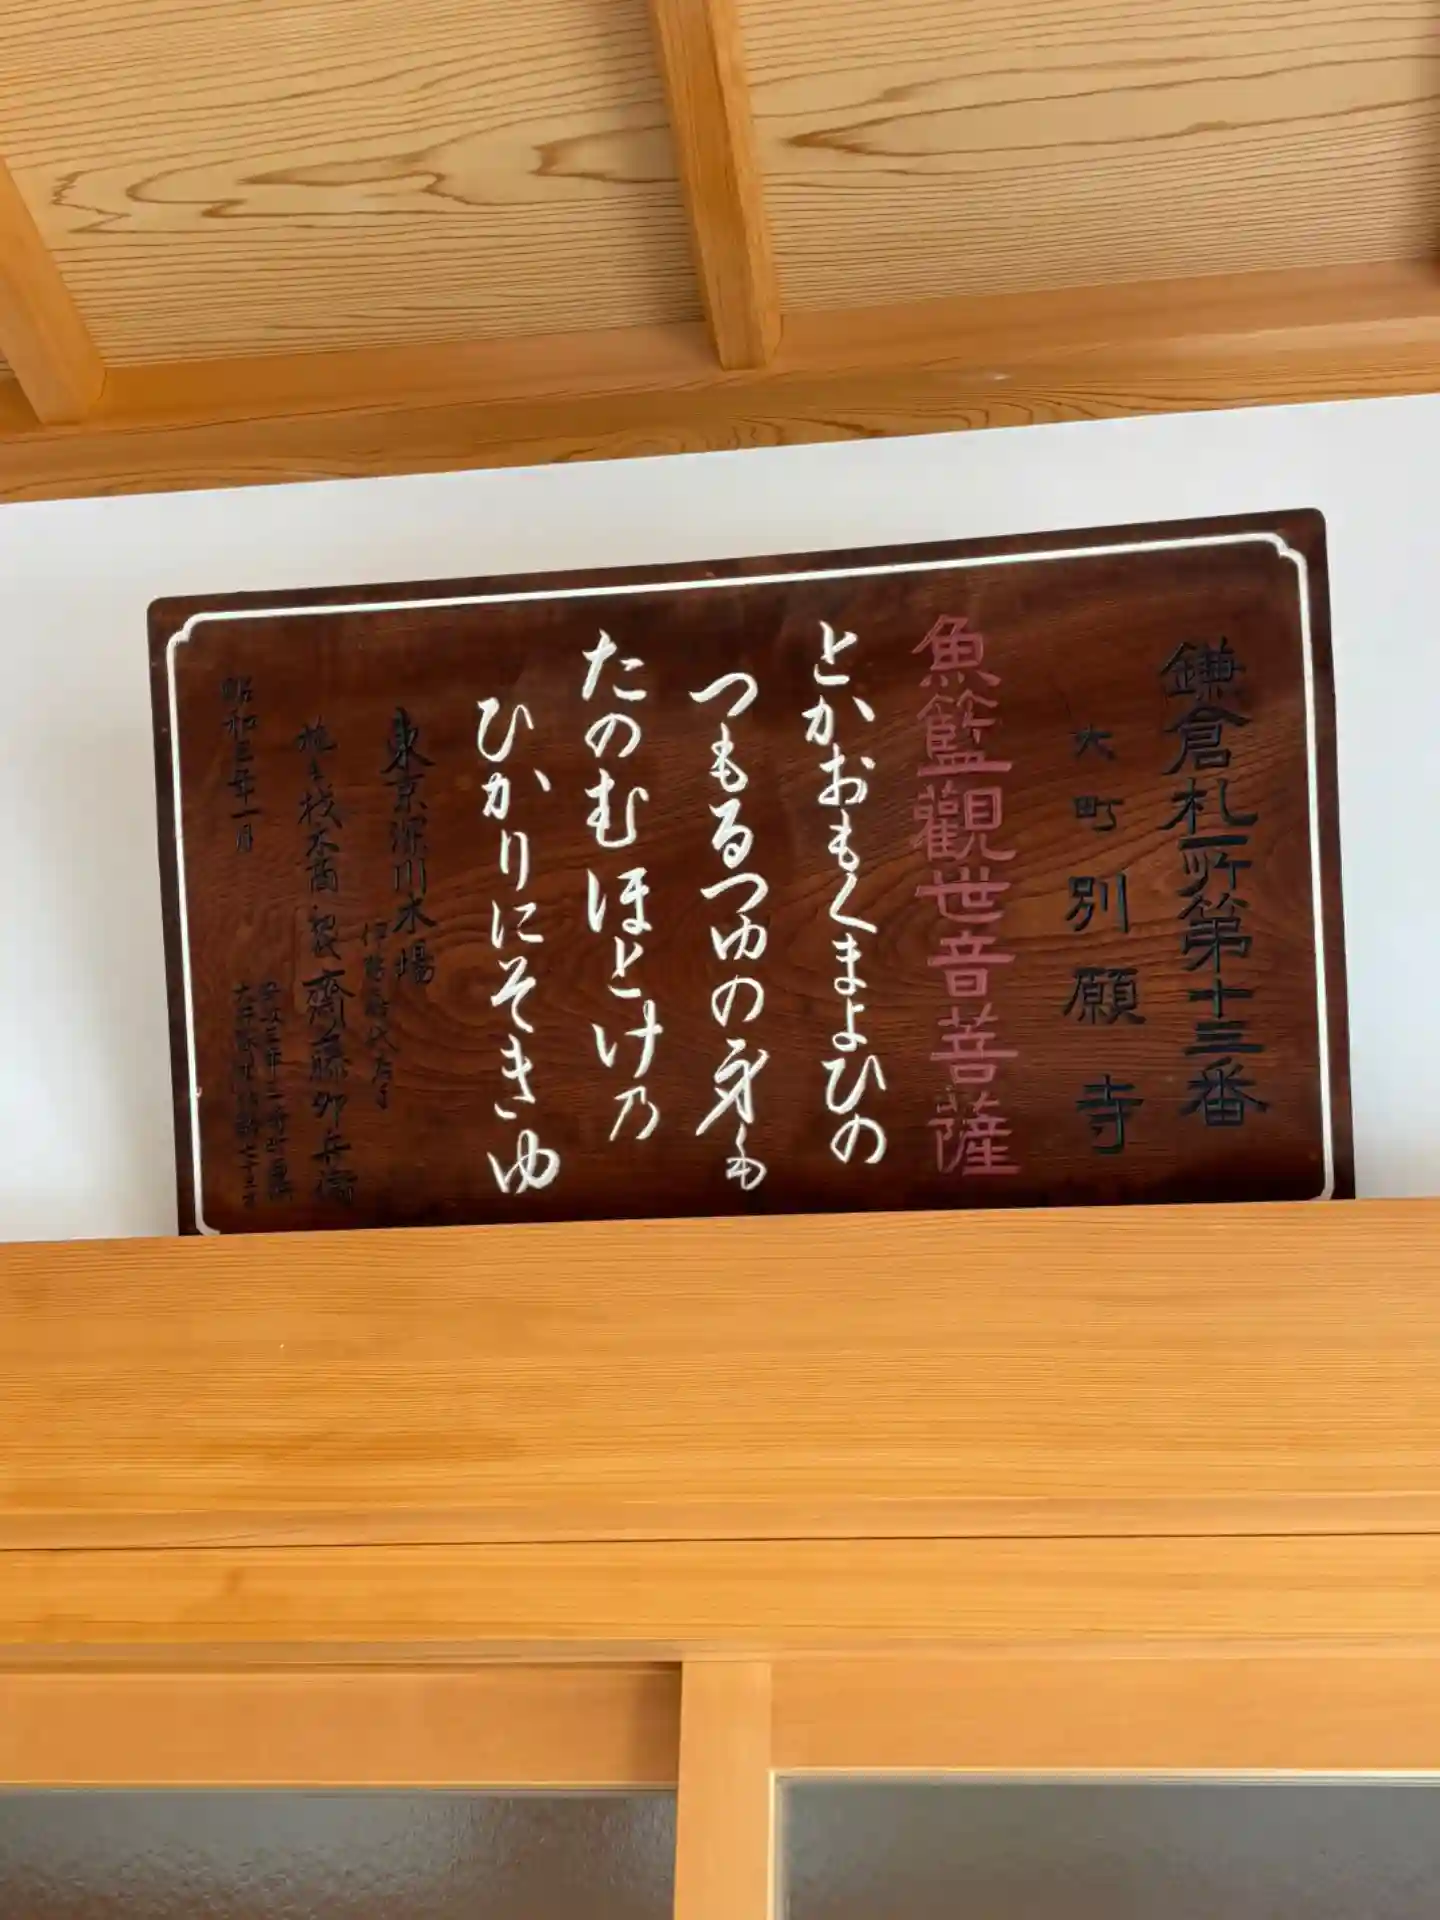 鎌倉札所第十三番
大町 別願寺
魚籃觀世音菩薩
とかおもくまよひの
つもるつゆの身も
たのむほとけ乃
ひかりにそきゆ
東京深川木場
施主 材木商 齋藤卯兵衛
昭和三年一月